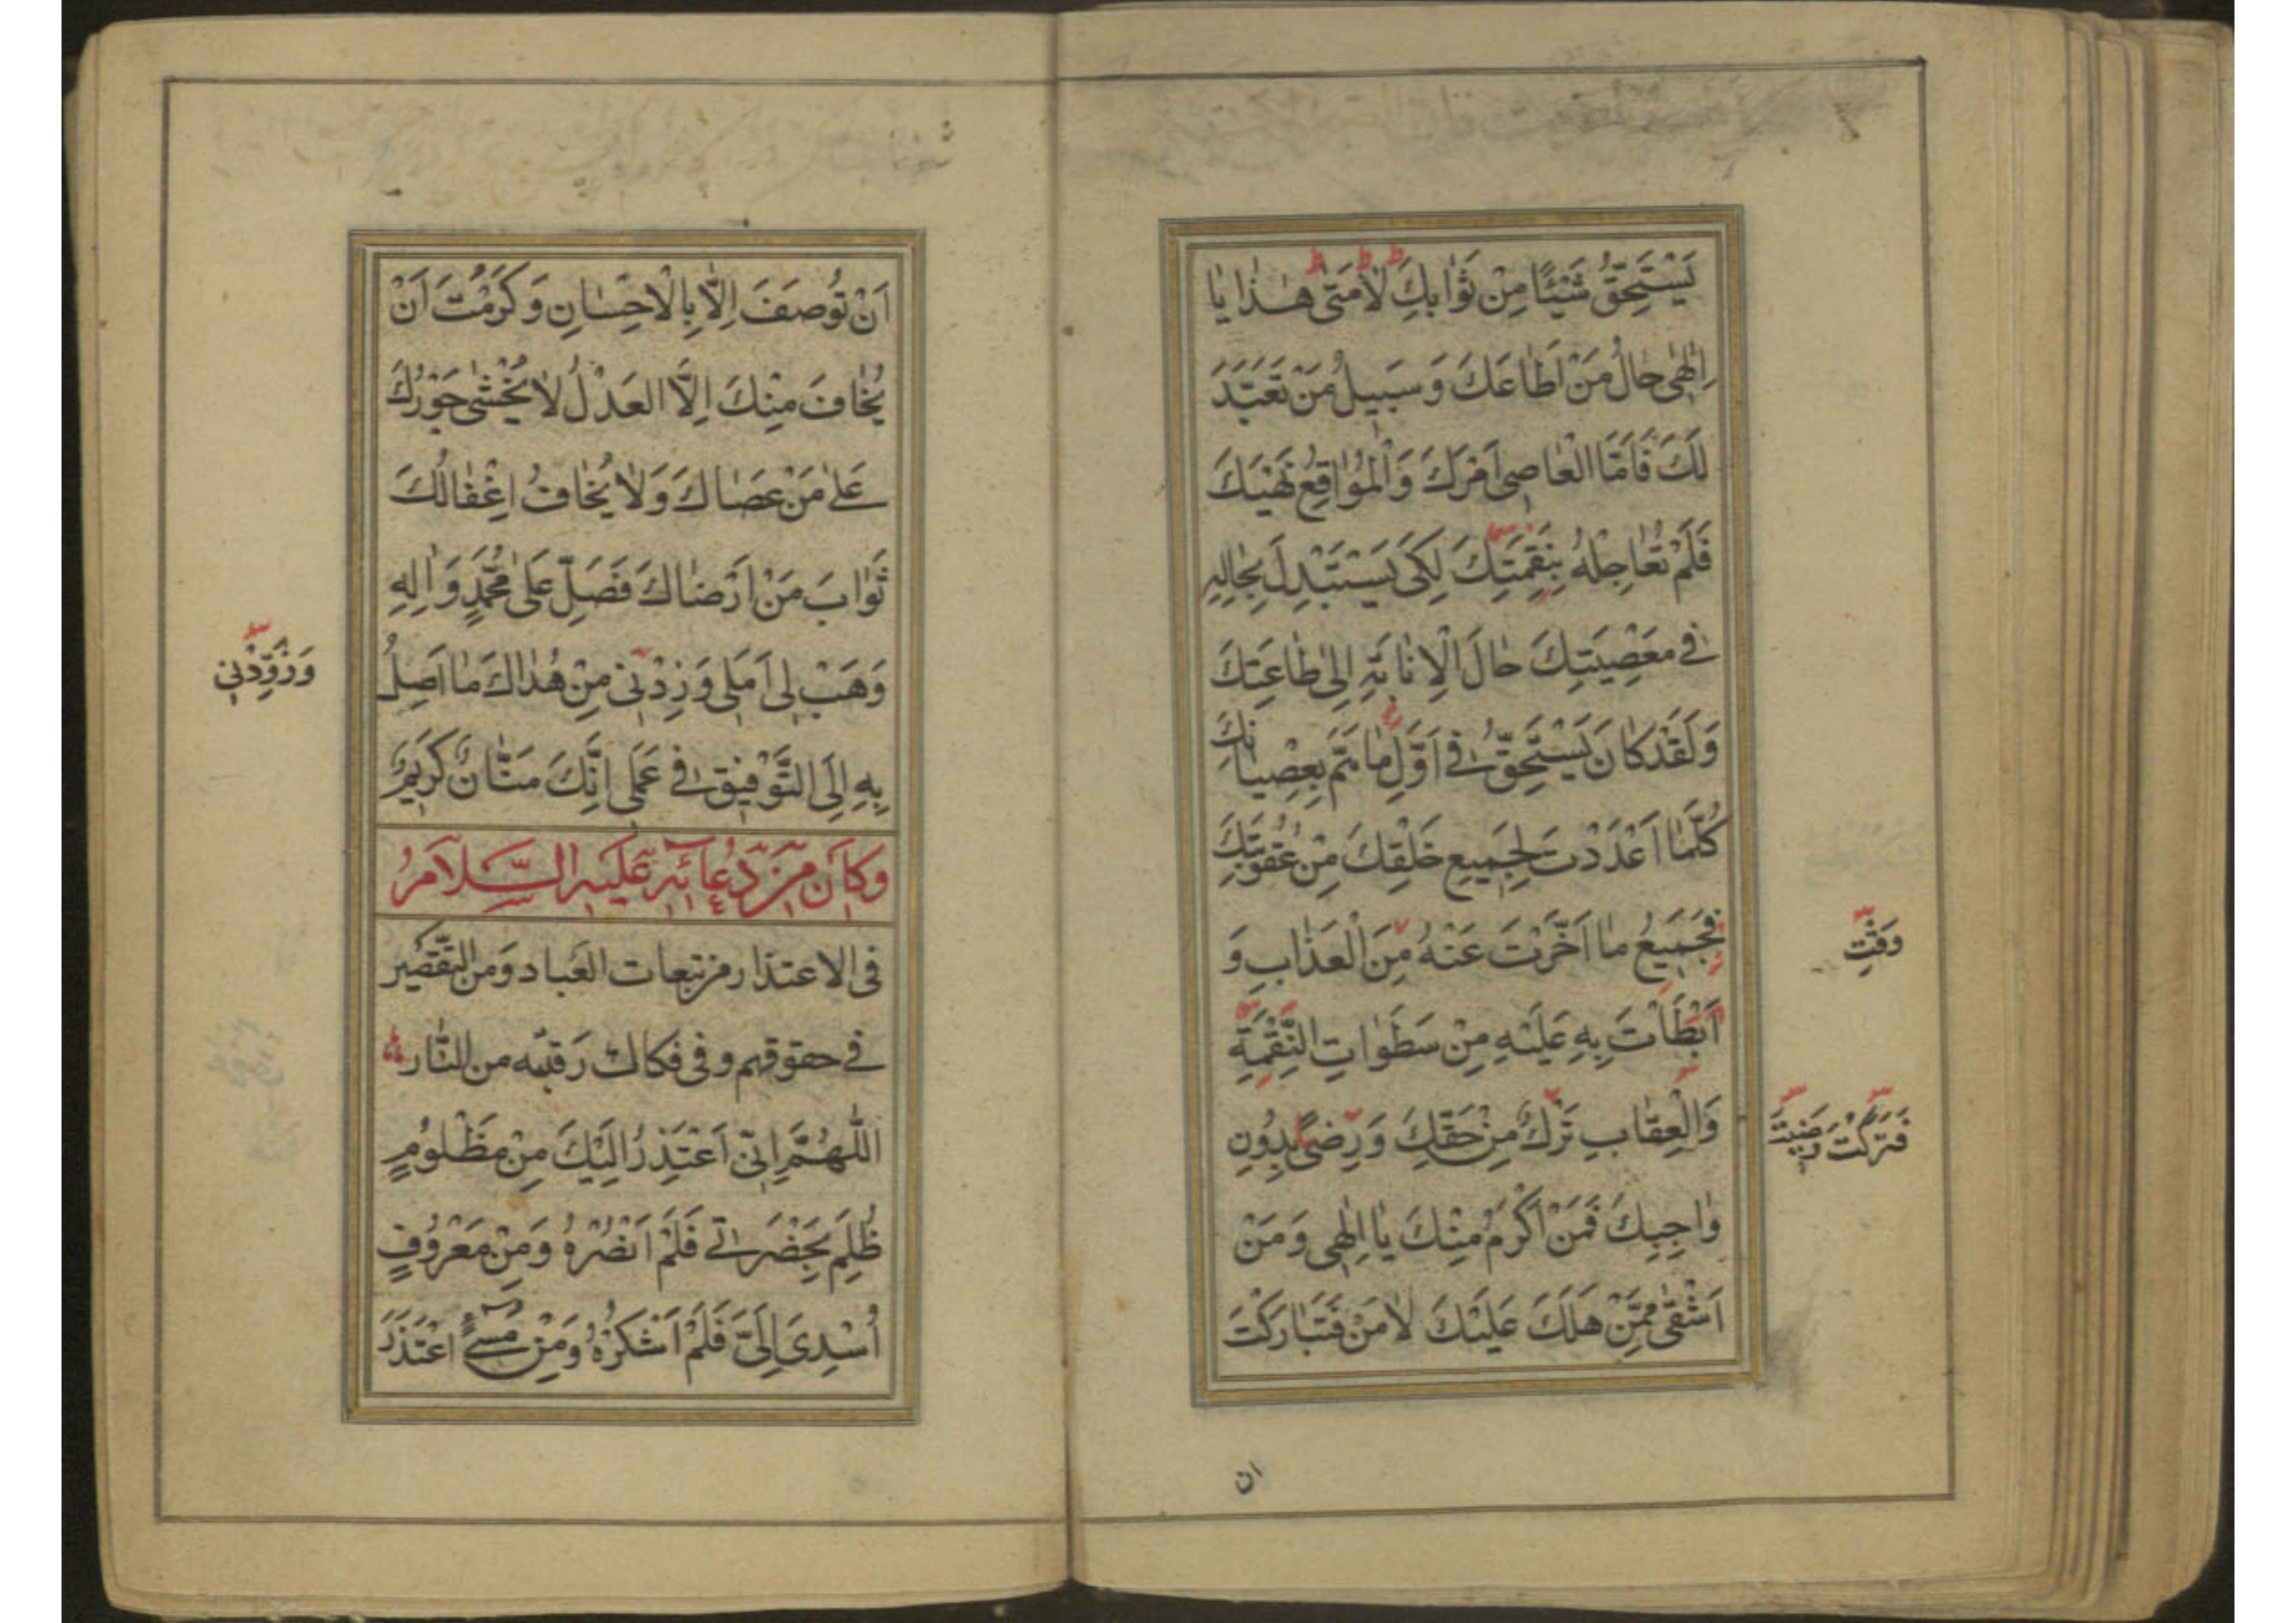 يَسْتَحِقُّ شَيْئًا مِنْ ثَوٰابِكَ لاٰ مَتٰى هٰذٰا يٰا
اِلٰهٖى حٰالُ مَنْ اَطٰاعَكَ وَ سَبِيلُ مَنْ تَعَبَّدَ
لَكَ فَاَمَّا الْعٰاصِى اَمْرَكَ وَ الْمُوٰاقِعُ نَهْيَكَ
فَلَمْ تُعٰاجِلْهُ بِنَقِمَتِكَ لِكَىْ يَسْتَبْدِلَ بِحٰالِهِ
فِى مَعْصِيَتِكَ حٰالَ الْاِنٰابَةِ اِلٰى طٰاعَتِكَ
وَ لَقَدْ كٰانَ يَسْتَحِقُّ فِى اَوَّلِ مٰا هَمَّ بِعِصْيٰانِكَ
كُلَّمٰا اَعْدَدْتَ لِجَمِيعِ خَلْقِكَ مِنْ عُقُوبَتِكَ
فَجَمِيعُ مٰا اَخَّرْتَ عَنْهُ مِنَ الْعَذٰابِ وَ
وَقْتِ
اَبْطَاْتَ بِهِ عَلَيْهِ مِنْ سَطَوٰاتِ النَّقِمَةِ
وَ الْعِقٰابِ تَرْكٌ مِنْ حَقِّكَ وَ رِضًى بِدُونِ
فَتَرَكْتَ رَضِيتَ
وٰاجِبِكَ فَمَنْ اَكْرَمُ مِنْكَ يٰا اِلٰهِى وَ مَنْ
اَشْقٰى مِمَّنْ هَلَكَ عَلَيْكَ لاٰ مَنْ فَتَبٰارَكْتَ
ان
اَنْ تُوصَفَ اِلاّٰ بِالْاِحْسٰانِ وَ كَرُمْتَ اَنْ
يُخٰافَ مِنْكَ اِلَّا العَدْلُ لاٰ يُخْشٰى جَوْرُكَ
عَلٰى مَنْ عَصٰاكَ وَ لاٰ يُخٰافُ اِغْفٰالُكَ
ثَوٰابَ مَنْ اَرْضٰاكَ فَصَلِّ عَلٰى مُحَمَّدٍ وَ اٰلِهِ
وَ هَبْ لِى اَمَلِى وَ زِدْنِى مِنْ هُدٰاكَ مٰا اَصِلُ
وَ زَوِّدْنِى
بِهِ اِلَى التَّوْفِيقِ فِى عَمَلِى اِنَّكَ مَنّٰانٌ كَرِيمٌ
وَ كَانَ مِنْ دُعَائِهِ عَلَيْهِ السَّلَامُ
فى الاعتذار من تبعات العباد وَ من التقصير
فى حقوقهم و فى فكاك رقبته من النّار
اَللّٰهُمَّ اِنِّى اَعْتَذِرُ اِلَيْكَ مِنْ مَظْلُومٍ
ظُلِمَ بِحَضْرَتِى فَلَمْ اَنْصُرْهُ وَ مِنْ مَعْرُوفٍ
اُسْدِىَ اِلَىَّ فَلَمْ اَشْكُرْهُ وَ مِنْ مُسِىءٍ اعْتَذَرَ